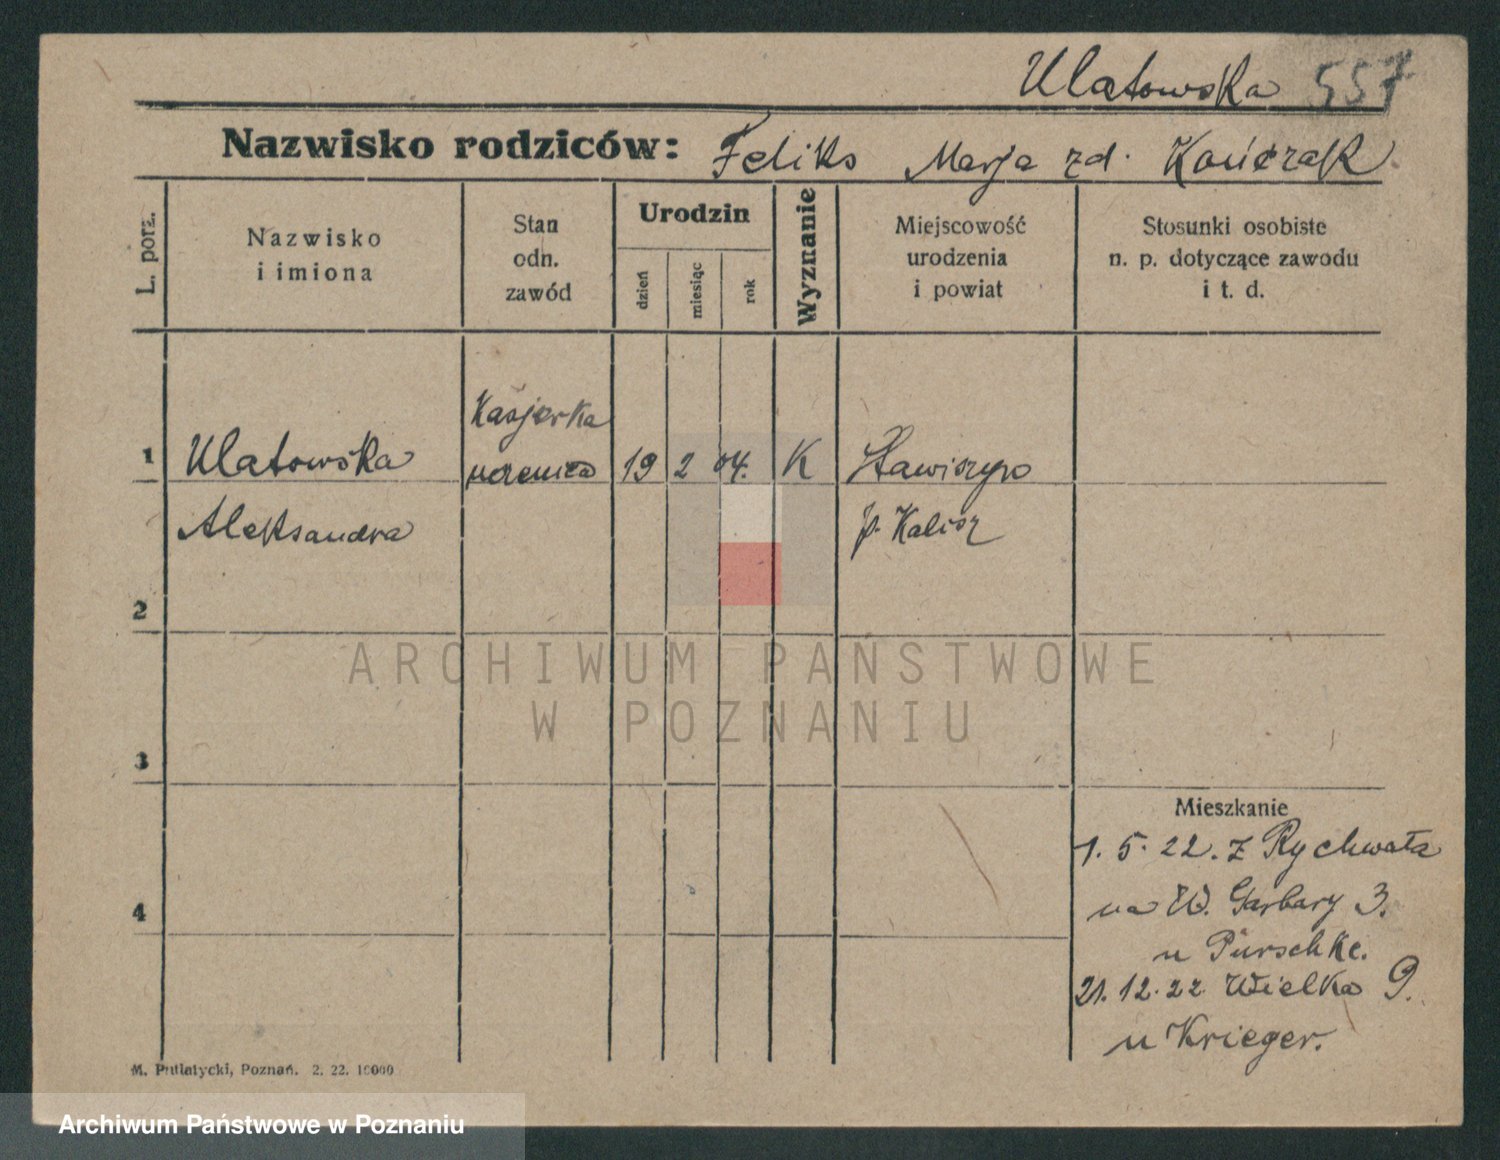 Ulatowska 557
Nazwisko rodziców: Feliks Marja zd. Kończak
L. porz.
Nazwisko
i imiona
Stan
odn.
zawód
Urodzin
dzień
miesiąc
rok
Wyznanie
Miejscowość
urodzenia
i powiat
Stosunki osobiste
n. p. dotyczące zawodu
i t. d.
Kasjerka
1 Ulatowska 19 2 04. K
Aleksandra p. Kalisz
2
ARCHIWUM PAŃSTWOWE
W POZNANIU
3
Mieszkanie
1. 5. 22. z Rychwała
4 na W. Garbary 3.
u Purschke.
21. 12. 22 Wielka 9.
u Krieger.
M. Putiatycki, Poznań. 2. 22. 10000
Archiwum Państwowe w Poznaniu